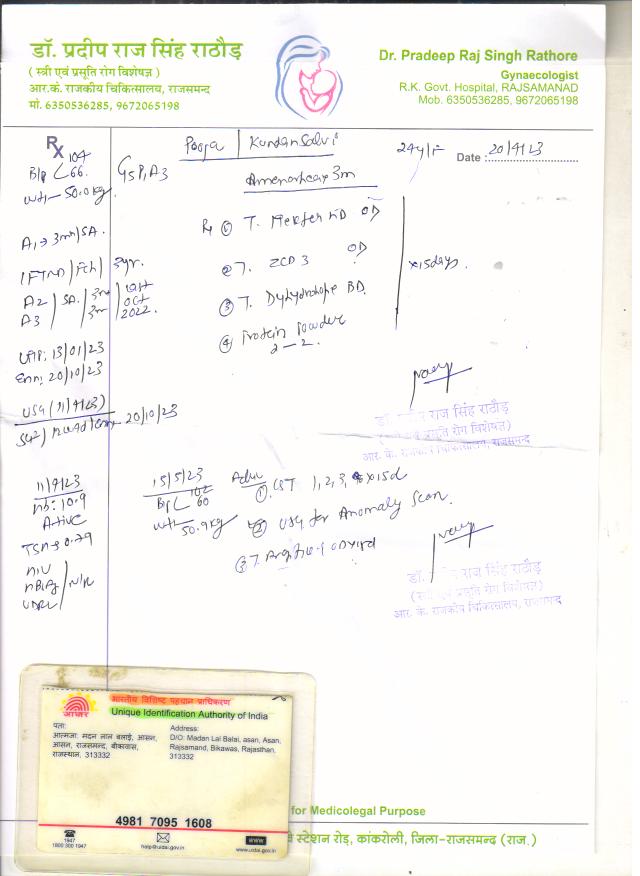 डॉ. प्रदीप राज सिंह राठौड़
( स्त्री एवं प्रसूति रोग विशेषज्ञ )
आर.के. राजकीय चिकित्सालय, राजसमन्द
मां. 6350536285, 9672065198
Dr. Pradeep Raj Singh Rathore
Gynaecologist
R.K. Govt. Hospital, RAJSAMANAD
Mob. 6350536285, 9672065198
Rx
Pooja | Kundan Salvi
24y/F
Date : 20/4/23
B/p 104
66
wt - 50.0 kg
G5P1A3
Amenorrhoea 3m
A1 → 3m/SA.
1 FTND / Fch / 3yr.
A2 / SA. / 3m
A3 / 3m / Oct 2022.
① T. OD
② T. ZCD 3 OD
③ T. BD
④ Protein Powder
2 - 2
x15days.
LMP: 13/01/23
EDD: 20/10/23
USG (11/4/23)
20/10/23
डॉ. प्रदीप राज सिंह राठौड़
(स्त्री एवं प्रसूति रोग विशेषज्ञ)
आर. के. राजकीय चिकित्सालय, राजसमन्द
11/4/23
Hb: 10.9
TSH → 0.79
HIV
HBsAg / N/R
VDRL
15/5/23
B/p 102
60
wt - 50.9 kg
Adv
① CST 1, 2, 3, x15d
② USG for Anomaly Scan.
③ T.
डॉ. सिंह राठौड़
(स्त्री एवं प्रसूति रोग विशेषज्ञ)
आर. के. राजकीय चिकित्सालय, राजसमन्द
भारतीय विशिष्ट पहचान प्राधिकरण
Unique Identification Authority of India
आधार
पता:
आत्मजा: मदन लाल बलाई, आसन,
आसन, राजसमन्द, बीकावास,
राजस्थान, 313332
Address:
D/O: Madan Lal Balai, asan, Asan,
Rajsamand, Bikawas, Rajasthan,
313332
4981 7095 1608
1947
1800 300 1947
help@uidai.gov.in
www
www.uidai.gov.in
for Medicolegal Purpose
स्टेशन रोड़, कांकरोली, जिला-राजसमन्द (राज.)